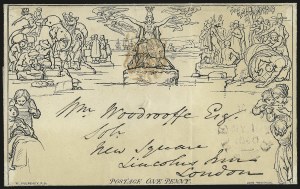 Wm Woodrooffe Esq.
Solr
New Square
Lincolns Inn
London
POSTAGE ONE PENNY.